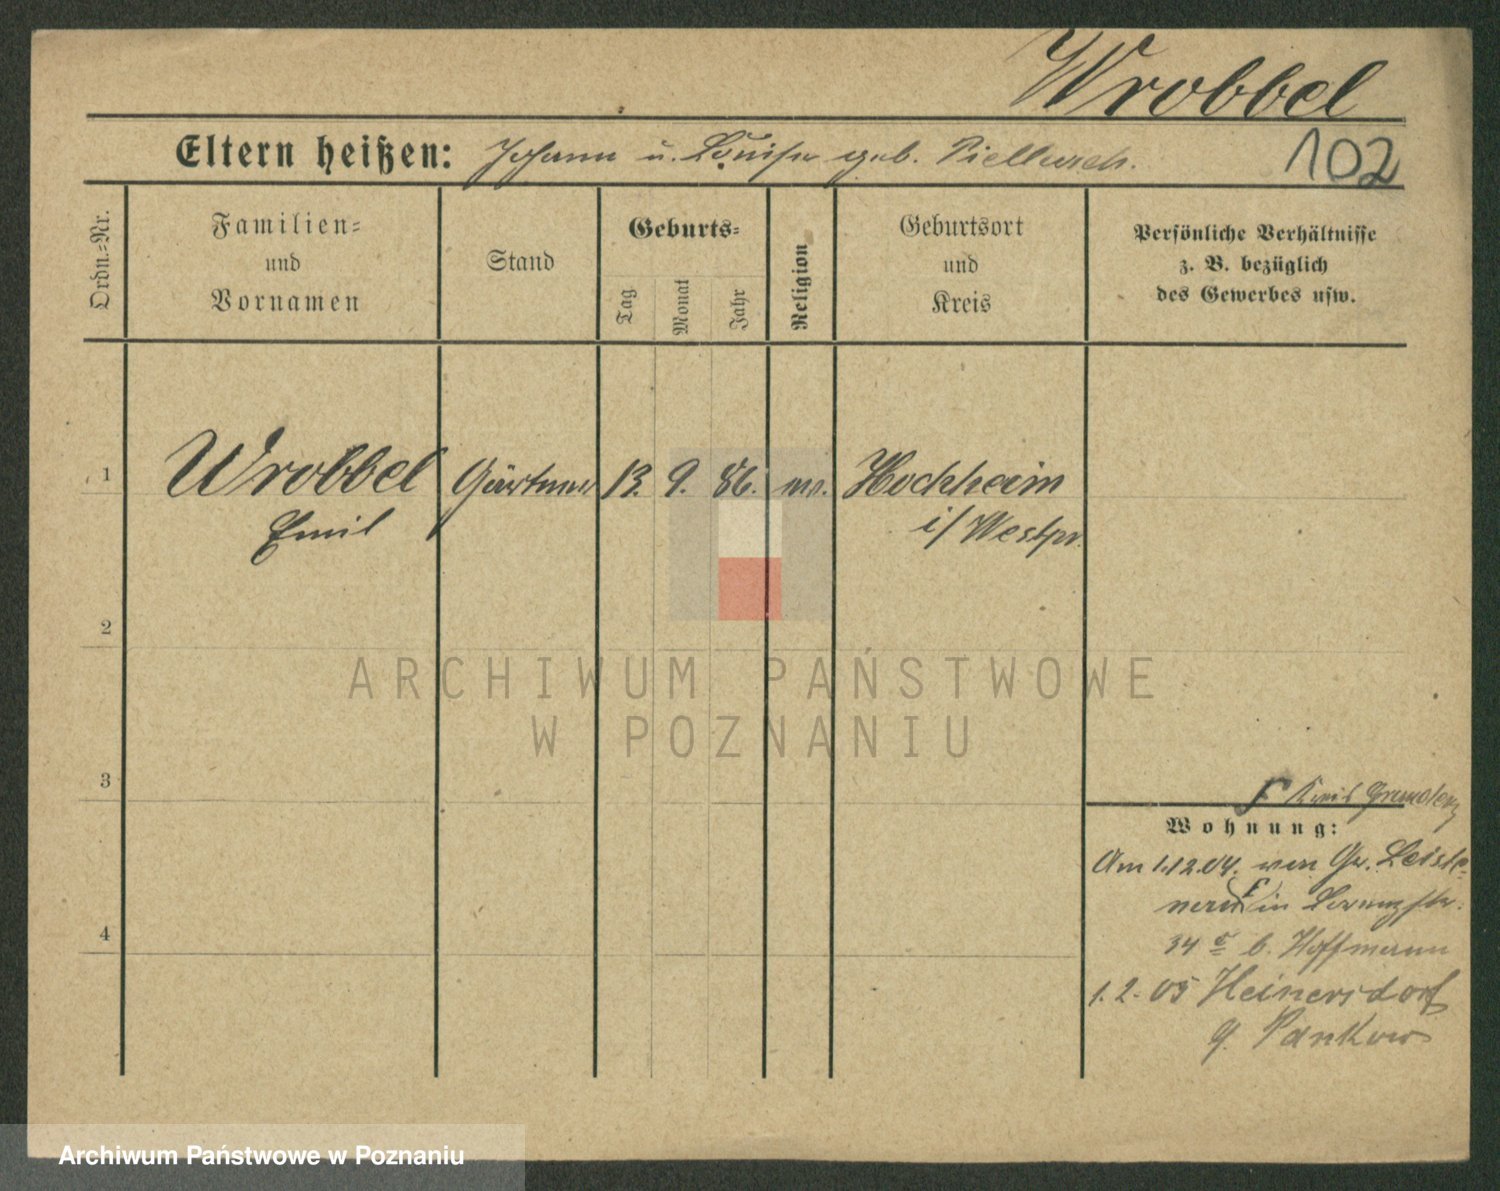 Wrobbel
Eltern heißen: Johann u. Louise geb.
102
Ordn.-Nr.
Familien-
und
Vornamen
Stand
Geburts-
Tag
Monat
Jahr
Religion
Geburtsort
und
Kreis
Persönliche Verhältnisse
z. B. bezüglich
des Gewerbes usw.
1 Wrobbel Gärtner 13. 9. 86. Hochheim
Emil i/ Westpr.
2
3
Kreis Graudenz
Wohnung:
Am 1.12.04. von Gr. Leiste-
nau in Lorenzstr.
4
34 b. Hoffmann
1.2.05 Heinersdorf
Pankow
ARCHIWUM PAŃSTWOWE
W POZNANIU
Archiwum Państwowe w Poznaniu